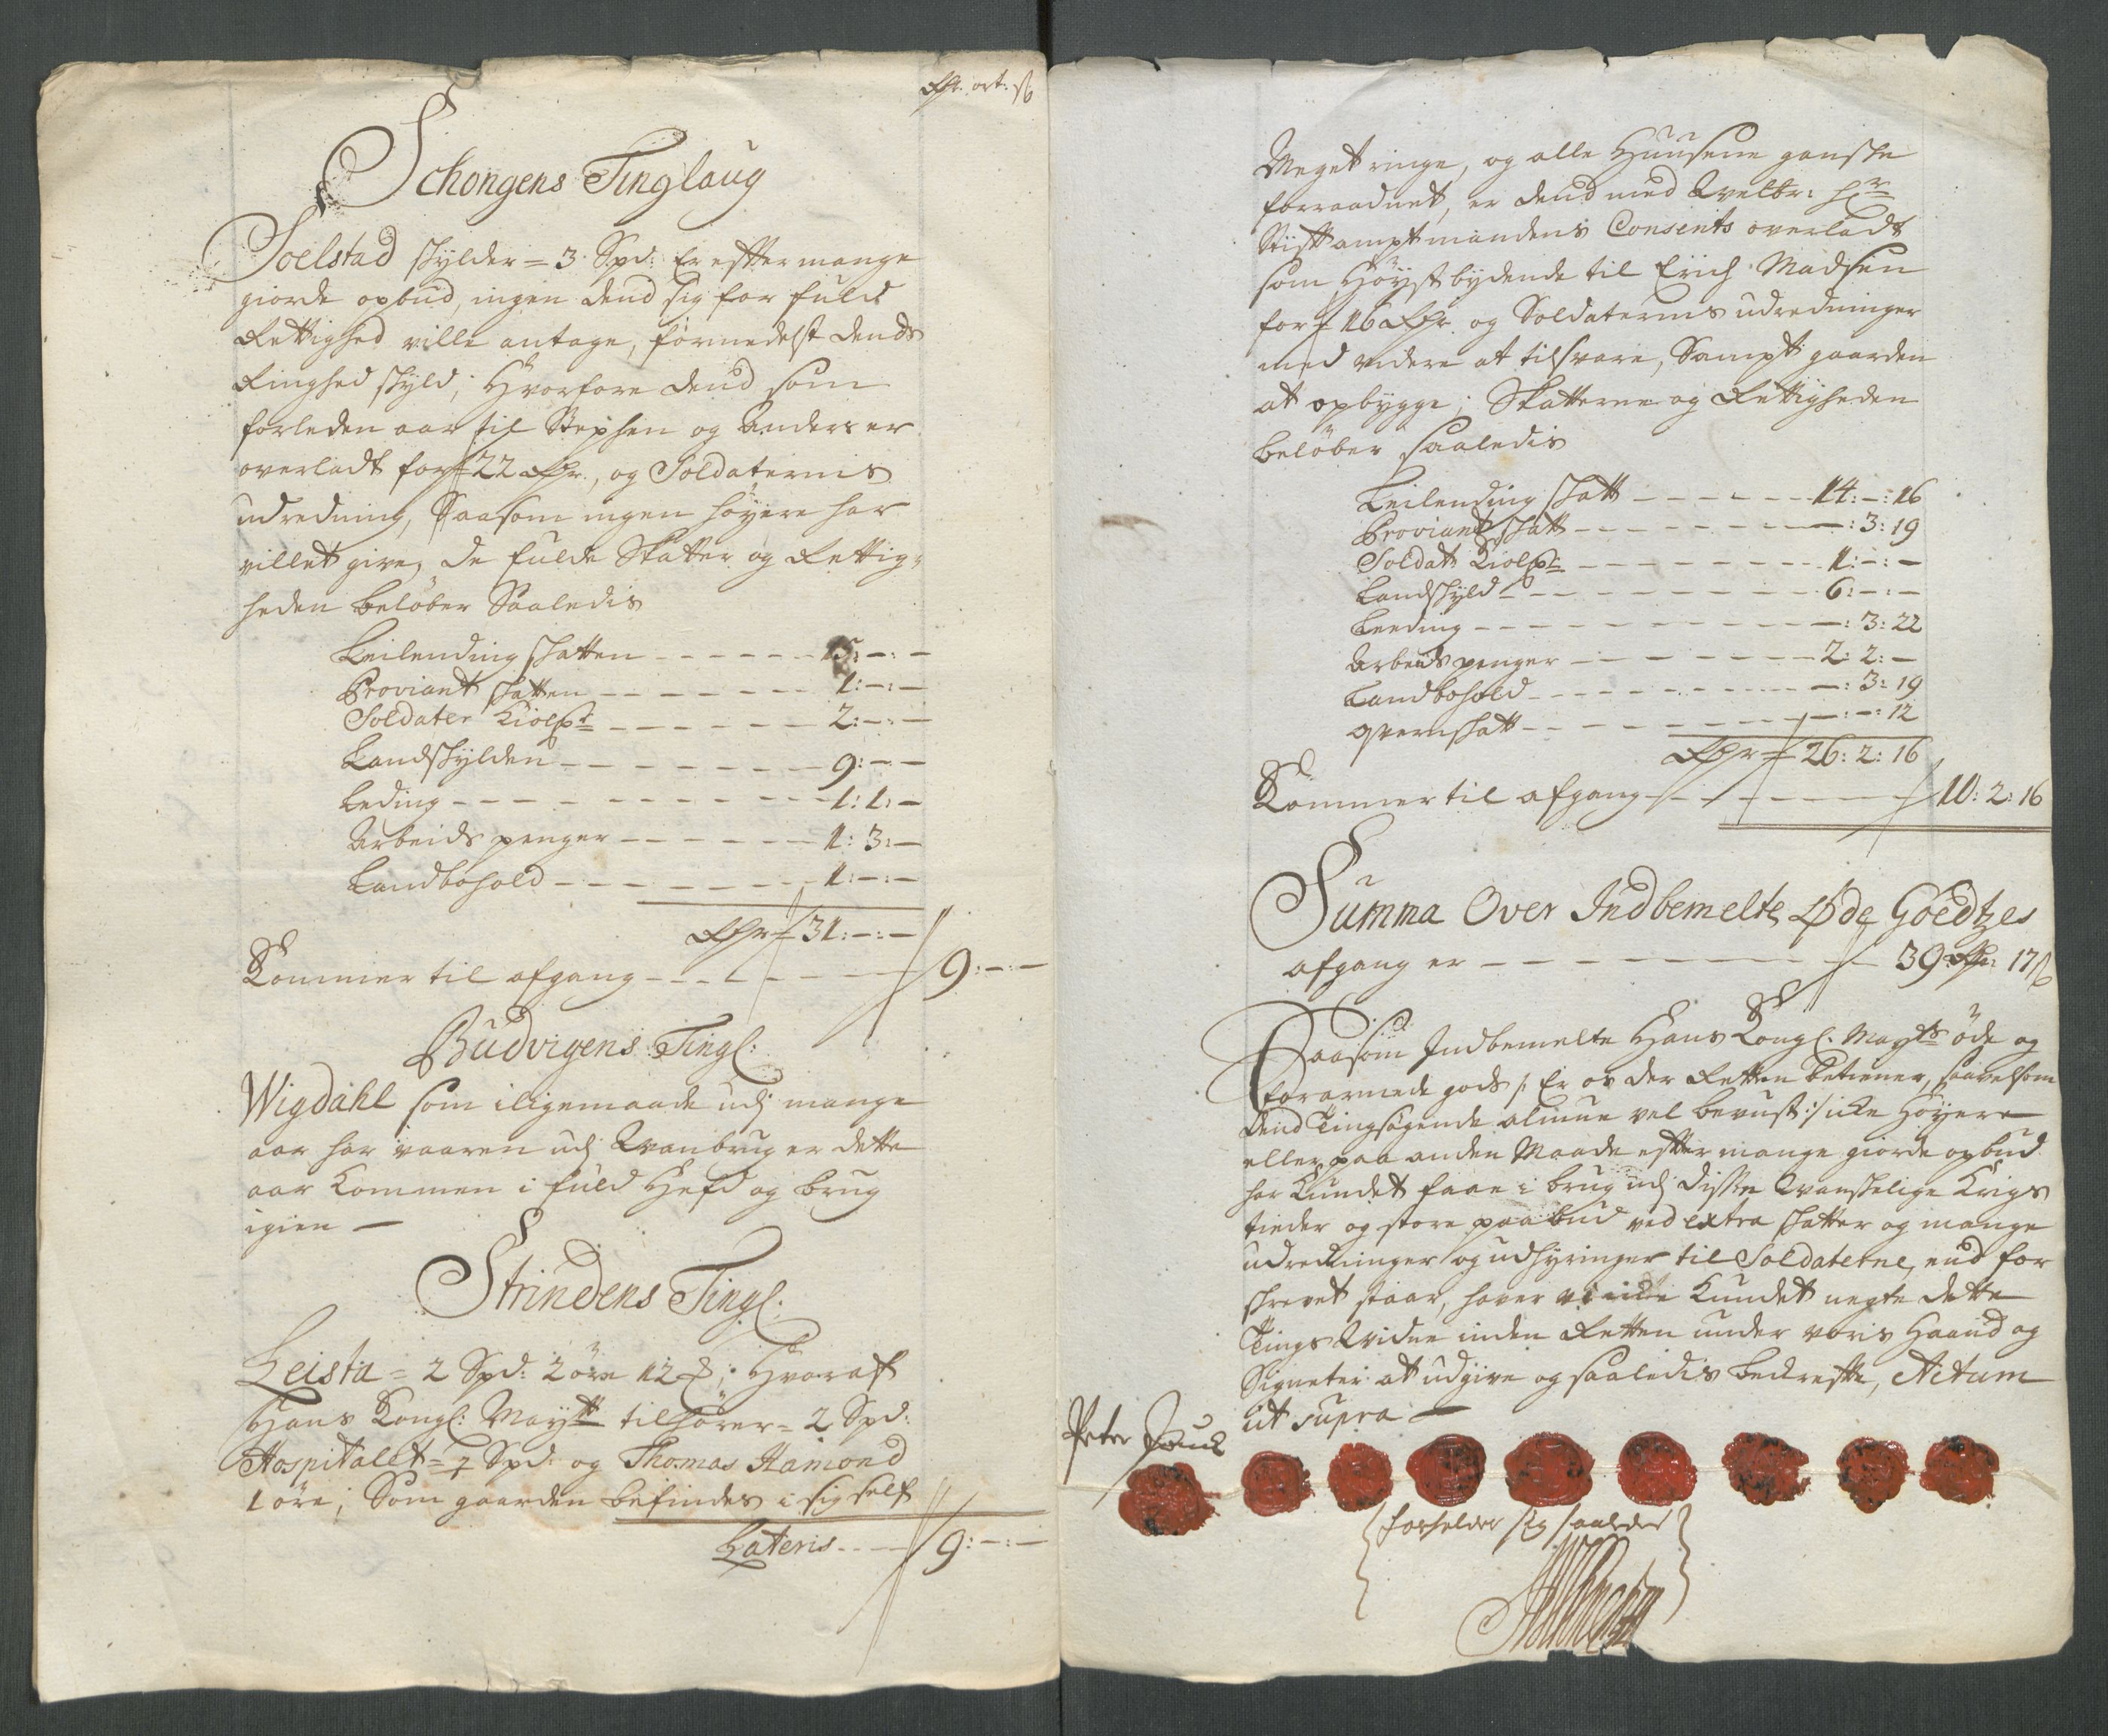 Rdr. ort. ß
Schongens Tinglaug
Soelstad skylder = 3 Spd: Er efter mange
giorde opbud, ingen dend sig for fuld
Rettighed ville antage, formedelst dends
Ringhed skyld; Hvorfore dend som
forleden aar til Stephen og Anders er
overladt for 22 Rdr., og Soldaternis
udredning, Saasom ingen høyere har
villet give, de fulde Skatter og Rettig-
heden beløber Saaledis
Leilending skatten - - - - - 15: - : -
Proviant skatten - - - - - - 1: - : -
Soldater Kiolpe - - - - - - 2: - : -
Landskylden - - - - - - - 9: - : -
Leding - - - - - - - - - 1: 1: -
Arbeids penger - - - - - - 1: 3: -
Landbohold - - - - - - - 1: - : -
Rdr 31: - : -
Kommer til afgang - - - - - - 9: - : -
Budvigens Tingl:
Wigdahl som iligemaade udj mange
aar har vaaren udj Qvanbrug er dette
aar Kommen i fuld Hefd og brug
igien -
Strindens Tingl:
Leista = 2 Spd: 2 øre 12 ; Hvoraf
Hans Kongl: Maytt tilhører = 2 Spd:
Hospitalet = ½ Spd: og Thomas Hamond
1 øre; Som gaarden befindes i sig self
Lateris - - - 9: - : -
Meget ringe, og alle Huusene ganske
forraadnet, er dend med Velbr: Hr
Stiftamptmandens Consents overladt
som Høystbydende til Erich Madsen
for 16 Rdr. og Soldaternis udredninger
med videre at tilsvare, Sampt gaarden
at opbygge; Skatterne og Rettigheden
beløber saaledis
Leilending skatt - - - - - 14: - : 16
Proviant skatt - - - - - - - : 3: 19
Soldat Kiolpe - - - - - - - 1: - : -
Landskyld - - - - - - - - 6: - : -
Leeding - - - - - - - - - : 3: 22
Arbeids penger - - - - - - 2: 2: -
Landbohold - - - - - - - - : 3: 19
qvernskatt - - - - - - - - : - : 12
Rdr 26: 2: 16
Kommer til afgang - - - - - - 10: 2: 16
Summa Over Indbemelte Øde Goedtzes
afgang er - - - - - - - - 39 Rdr 17 ß
Saasom Indbemelte Hans Kongl: Mayts øde og
forarmede gods /: Er os der Retten betiener, saavelsom
dend Tingsøgende almue vel bevust :/ icke Høyere
eller paa anden Maade efter mange giorde opbud
har Kundet faae i brug udj disse Vanskelige Krigs
tieder og store paabud ved extra skatter og mange
udredninger og udhyringer til Soldaterne, end for
skrevet staar, haver vi icke Kundet negte dette
Tings Vidne inden Retten under voris Haand og
Signeter at udgive og saaledis bekrefte, Actum
ut supra -
Peter
forholder sig saaledes